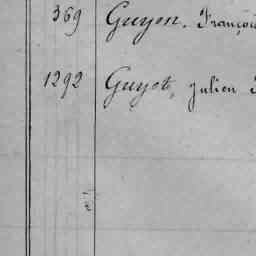 369 Guyon. Françoi
1292 Guyot, Julien